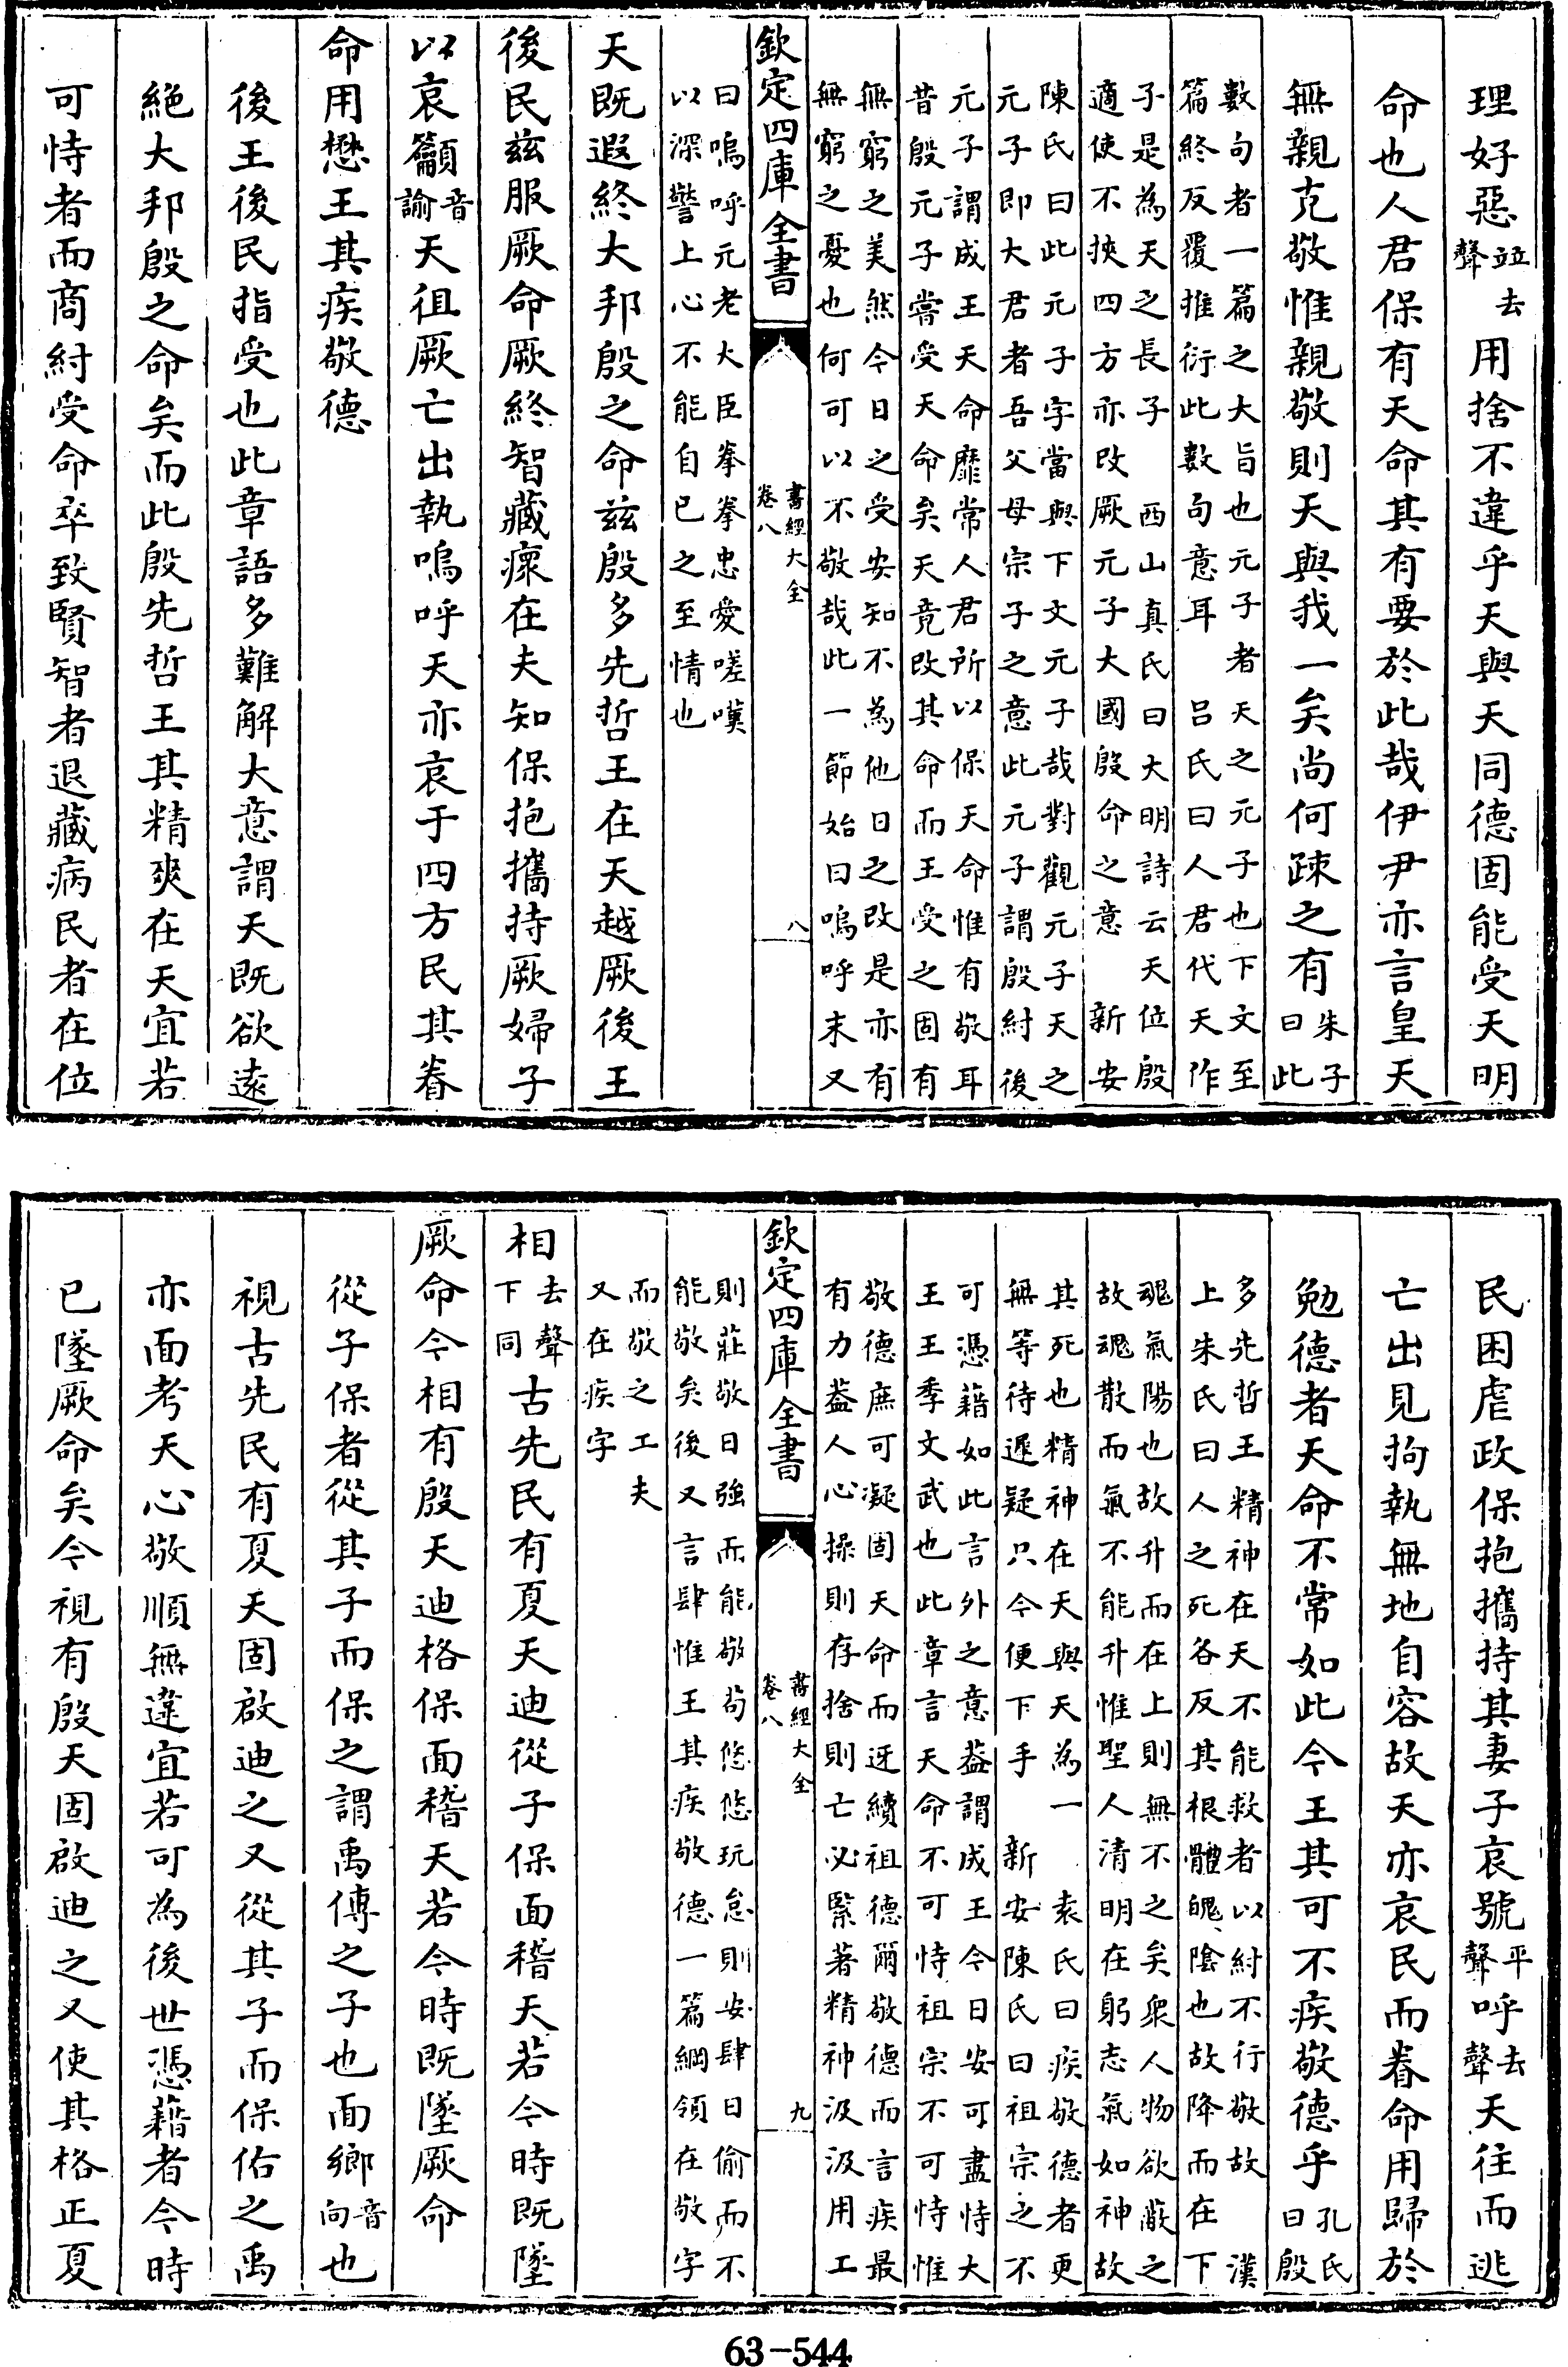 理好惡並去聲用捨不違乎天與天同德固能受天明
命也人君保有天命其有要於此哉伊尹亦言皇天
無親克敬惟親敬則天與我一矣尚何疎之有朱子曰此
數句者一篇之大旨也元子者天之元子也下文至
篇終反覆推衍此數句意耳 呂氏曰人君代天作
子是為天之長子 西山真氏曰大明詩云天位殷
適使不挾四方亦改厥元子大國殷命之意 新安
陳氏曰此元子字當與下文元子哉對觀元子天之
元子即大君者吾父母宗子之意此元子謂殷紂後
元子謂成王天命靡常人君所以保天命惟有敬耳
昔殷元子嘗受天命矣天竟改其命而王受之固有
無窮之美然今日之受安知不為他日之改是亦有
無窮之憂也何可以不敬哉此一節始曰嗚呼末又
欽定四庫全書 書經大全 卷八 八
曰嗚呼元老大臣拳拳忠愛嗟嘆
以深警上心不能自已之至情也
天既遐終大邦殷之命茲殷多先哲王在天越厥後王
後民茲服厥命厥終智藏瘝在夫知保抱攜持厥婦子
以哀籲音諭天徂厥亡出執嗚呼天亦哀于四方民其眷
命用懋王其疾敬德
後王後民指受也此章語多難解大意謂天既欲遠
絕大邦殷之命矣而此殷先哲王其精爽在天宜若
可恃者而商紂受命卒致賢智者退藏病民者在位
民困虐政保抱攜持其妻子哀號平聲呼去聲天往而逃
亡出見拘執無地自容故天亦哀民而眷命用歸於
勉德者天命不常如此今王其可不疾敬德乎孔氏曰殷
多先哲王精神在天不能救者以紂不行敬故 漢
上朱氏曰人之死各反其根體魄陰也故降而在下
魂氣陽也故升而在上則無不之矣衆人物欲蔽之
故魂散而氣不能升惟聖人清明在躬志氣如神故
其死也精神在天與天為一 袁氏曰疾敬德者更
無等待遲疑只今便下手 新安陳氏曰祖宗之不
可憑藉如此言外之意蓋謂成王今日安可盡恃大
王王季文武也此章言天命不可恃祖宗不可恃惟
敬德庶可凝固天命而迓續祖德爾敬德而言疾最
有力蓋人心操則存捨則亡必緊著精神汲汲用工
欽定四庫全書 書經大全 卷八 九
則莊敬日強而能敬苟悠悠玩怠則安肆日偷而不
能敬矣後又言肆惟王其疾敬德一篇綱領在敬字
而敬之工夫
又在疾字
相去聲下同古先民有夏天迪從子保面稽天若今時既墜
厥命今相有殷天迪格保面稽天若今時既墜厥命
從子保者從其子而保之謂禹傳之子也面鄉音向也
視古先民有夏天固啟迪之又從其子而保佑之禹
亦面考天心敬順無違宜若可為後世憑藉者今時
已墜厥命矣今視有殷天固啟迪之又使其格正夏
63-544